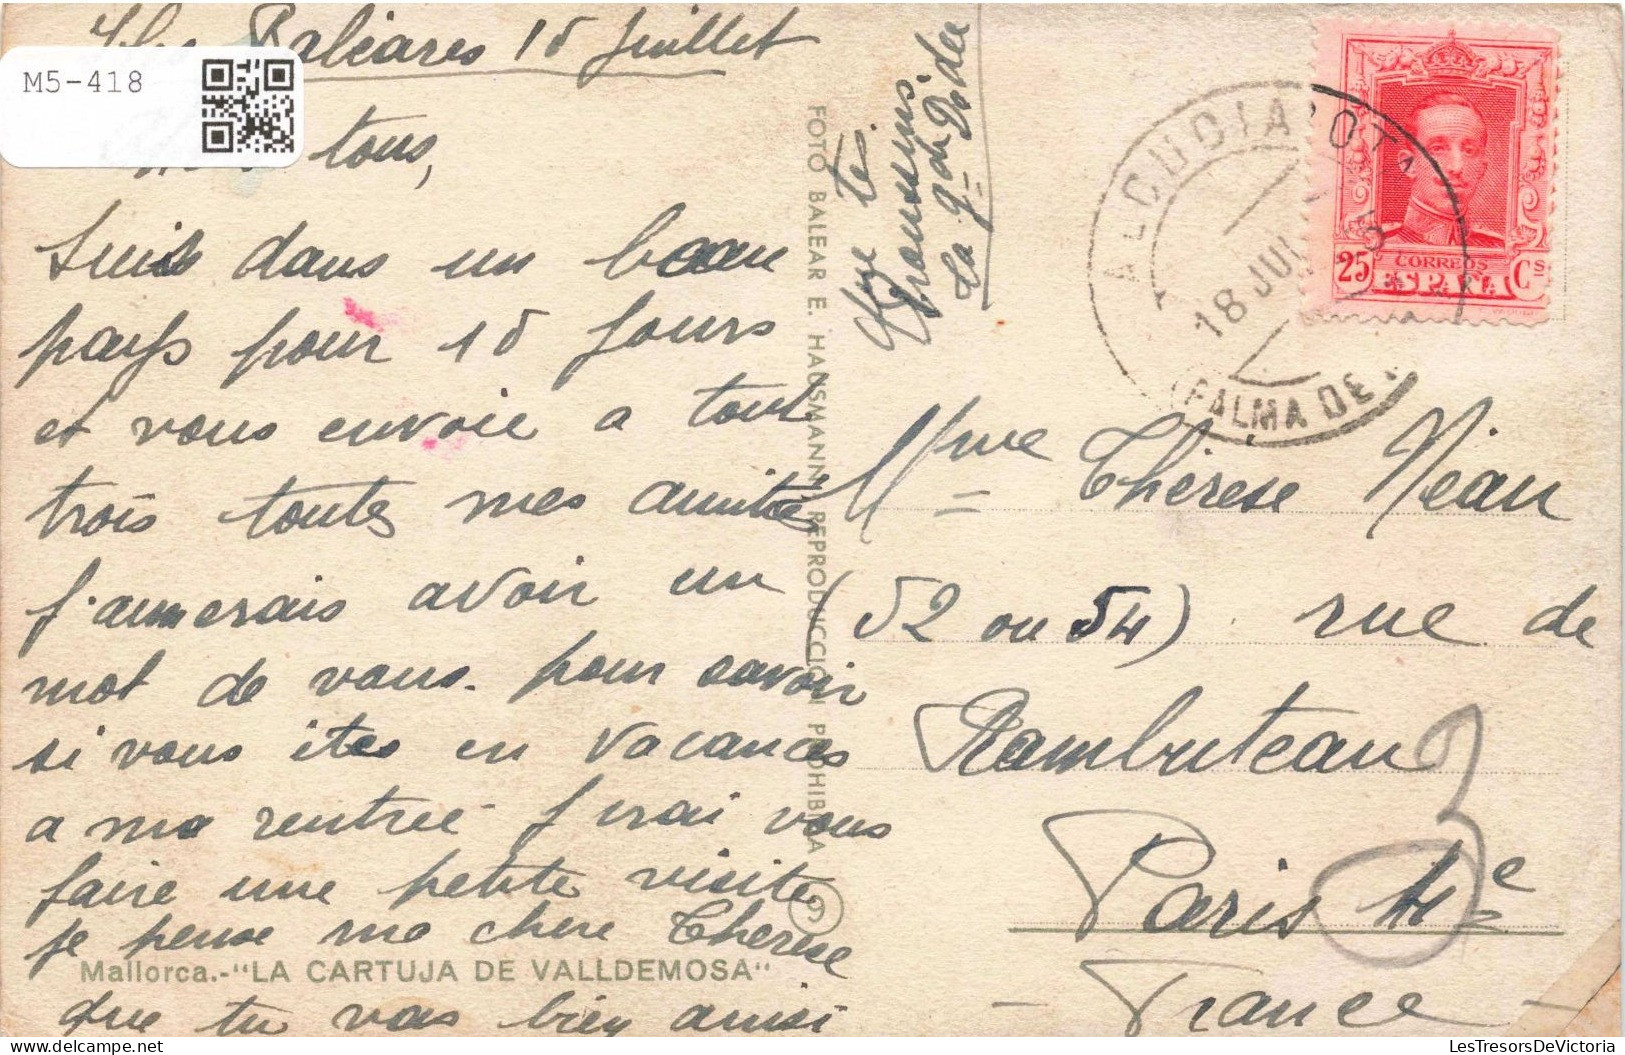 M5-418
Baléares 18 Juillet
tous,
Suis dans un beau
pays pour 18 jours
et vous envoie a tout
trois toutes mes amitiés
j'aimerais avoir un
mot de vous. pour savoir
si vous êtes en vacances
a ma rentrée j'irai vous
faire une petite visite.
je pense ma chere Therese
que tu vas bien ainsi
Mallorca.-"LA CARTUJA DE VALLDEMOSA"
que tes
la
FOTO BALEAR E. HAUSMANN, REPRODUCCION PROHIBIDA
ALCUDIA
18 JUL
PALMA DE
25 CORREOS Cs
ESPAÑA
Mme Thérèse Néau
(52 ou 54) rue de
Rambuteau
Paris 4e
3
- France -
LesTresorsDeVictoria